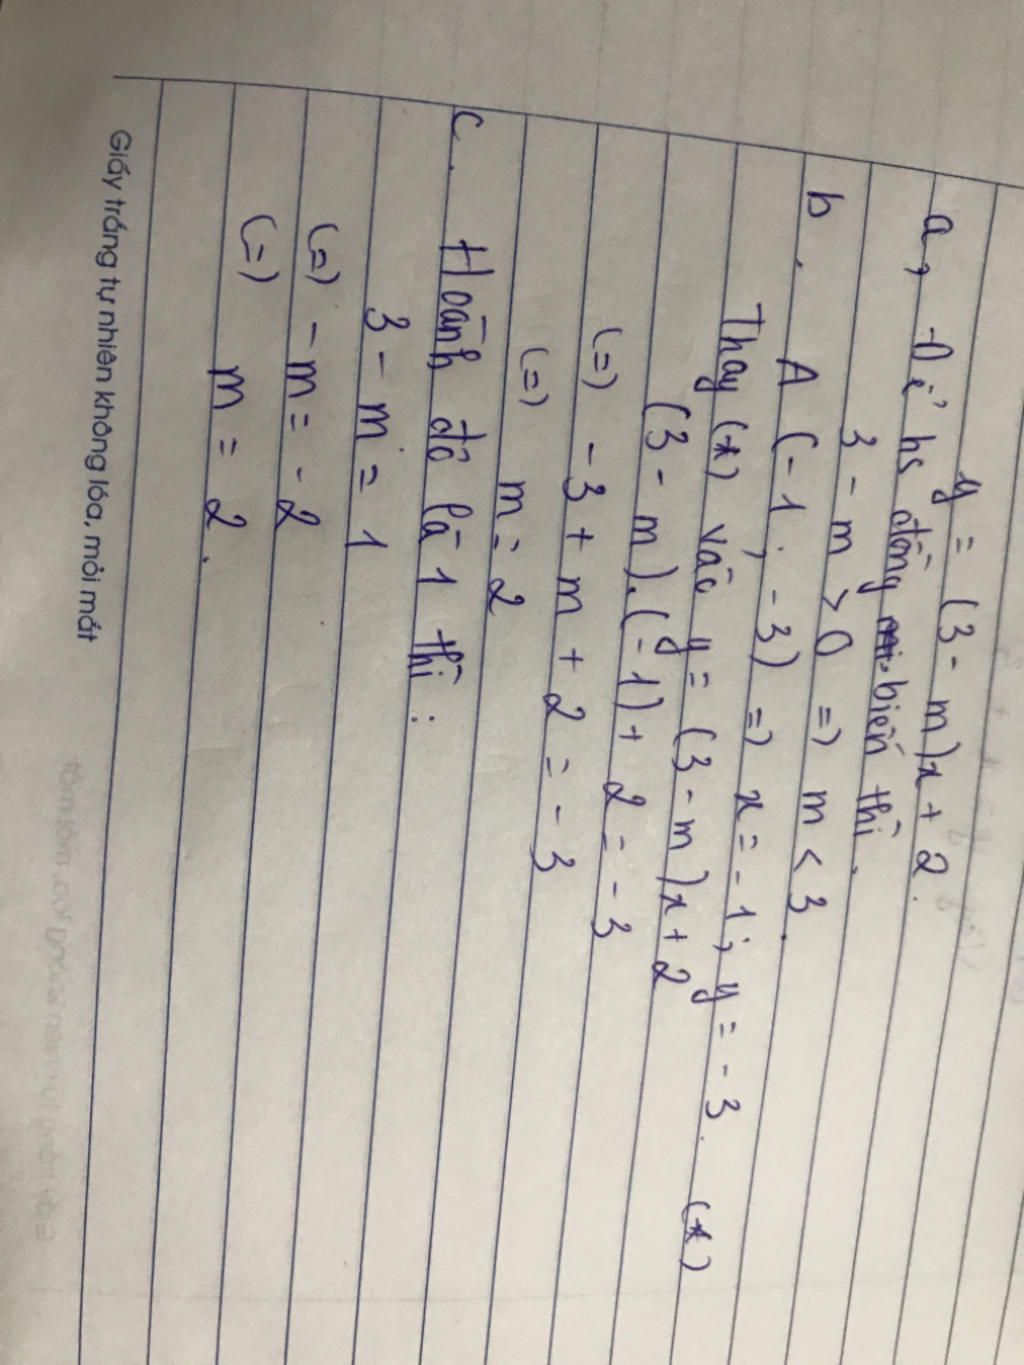 y = (3 - m)x + 2.
a, Để hs đồng biến thì.
3 - m > 0 => m < 3.
b. A (-1; -3) => x = -1; y = -3. (*)
Thay (*) vào y = (3 - m)x + 2
(3 - m).(-1) + 2 = -3
(=) -3 + m + 2 = -3
(=) m = 2
c. Hoành độ là 1 thì:
3 - m = 1
(=) -m = -2
(=) m = 2.
Giấy trắng tự nhiên không lóa, mỏi mắt